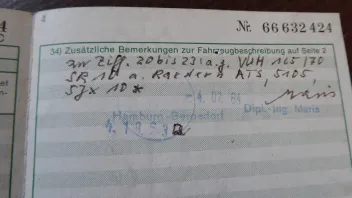 2
Nr. 66 632 424
34) Zusätzliche Bemerkungen zur Fahrzeugbeschreibung auf Seite 2
zu Ziff. 20 bis 23: a.g. VUH 165/70
SR 10 a. Rädern ATS, 5105,
5Jx 10 *
- 4. 02. 84
Hamburg - Bergedorf
Dipl.-Ing. Maris